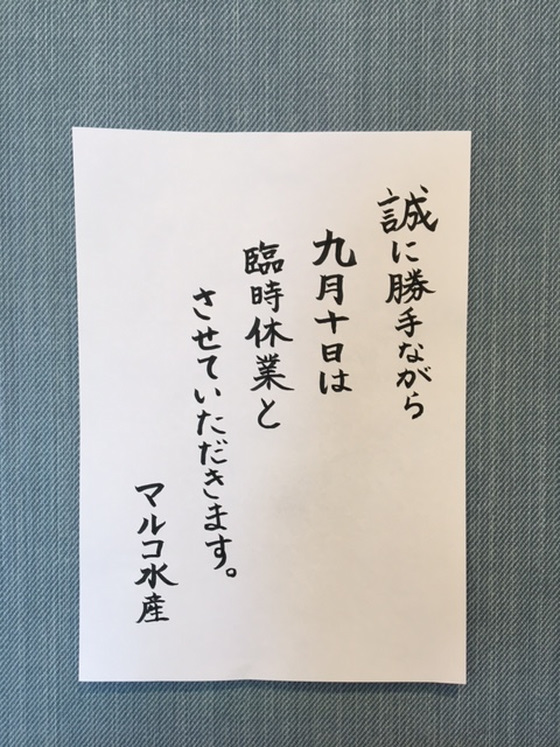 誠に勝手ながら
九月十日は
臨時休業と
させていただきます。
マルコ水産